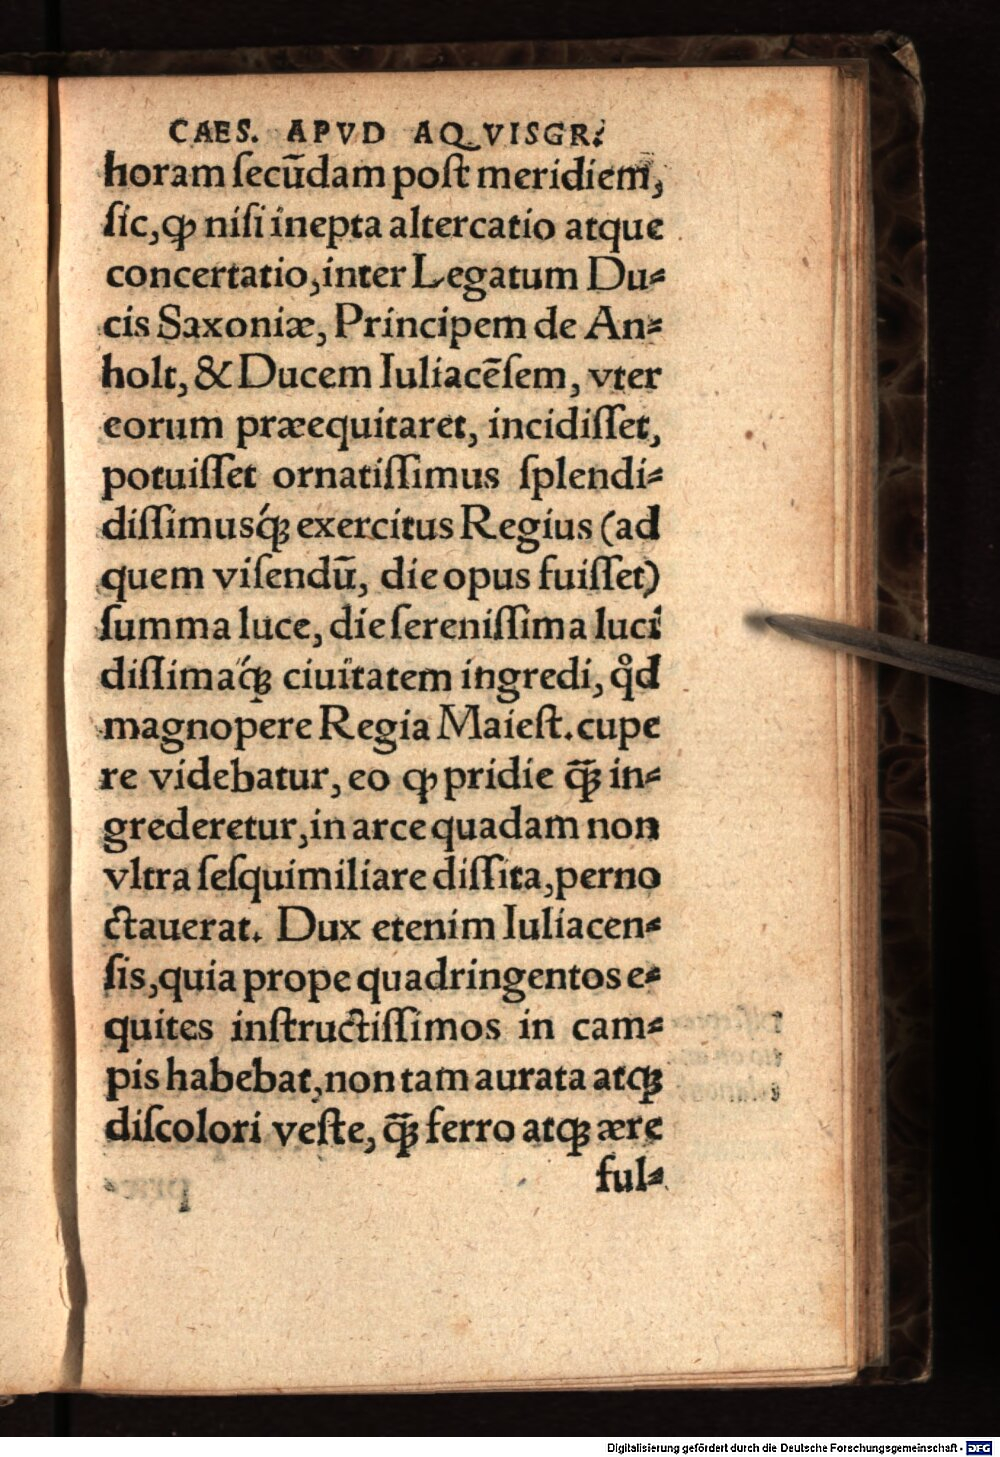 CAES. APVD AQVISGR.
horam ſecūdam poſt meridiem,
ſic, ꝙ niſi inepta altercatio atque
concertatio, inter Legatum Du⸗
cis Saxoniæ, Principem de An⸗
holt, & Ducem Iuliacēſem, vter
eorum præequitaret, incidiſſet,
potuiſſet ornatiſſimus ſplendi⸗
diſſimusq́ꝫ exercitus Regius (ad
quem viſendū, die opus fuiſſet)
ſumma luce, die ſereniſſima luci
diſſimaq́ꝫ ciuitatem ingredi, qd̊
magnopere Regia Maieſt. cupe
re videbatur, eo ꝙ pridie q̄ꝫ in⸗
grederetur, in arce quadam non
vltra ſeſquimiliare diſſita, perno
ctauerat. Dux etenim Iuliacen⸗
ſis, quia prope quadringentos e⸗
quites inſtructiſſimos in cam⸗
pis habebat, non tam aurata atqꝫ
diſcolori veſte, q̄ꝫ ferro atqꝫ ære
ful⸗
Digitalisierung gefördert durch die Deutsche Forschungsgemeinschaft - DFG